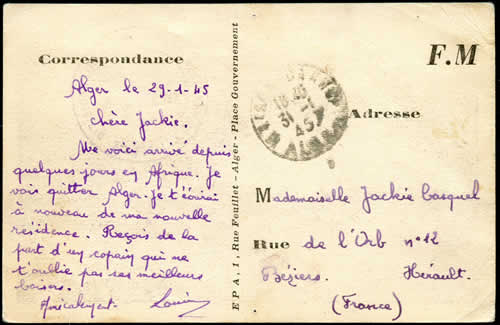 Correspondance
Alger le 29-1-45
chère Jackie.
Me voici arrivé depuis
quelques jours en Afrique. Je
vais quitter Alger. Je t'écrirai
à nouveau de ma nouvelle
résidence. Reçois de la
part d'un copain qui ne
t'oublie pas ses meilleurs
baisers.
Amicalement. Louis
E P A, 1, Rue Feuillet - Alger - Place Gouvernement
F.M
31
45
Adresse
Mademoiselle Jackie Casquel
Rue de l'Orb n° 12
Béziers. Hérault.
(France)